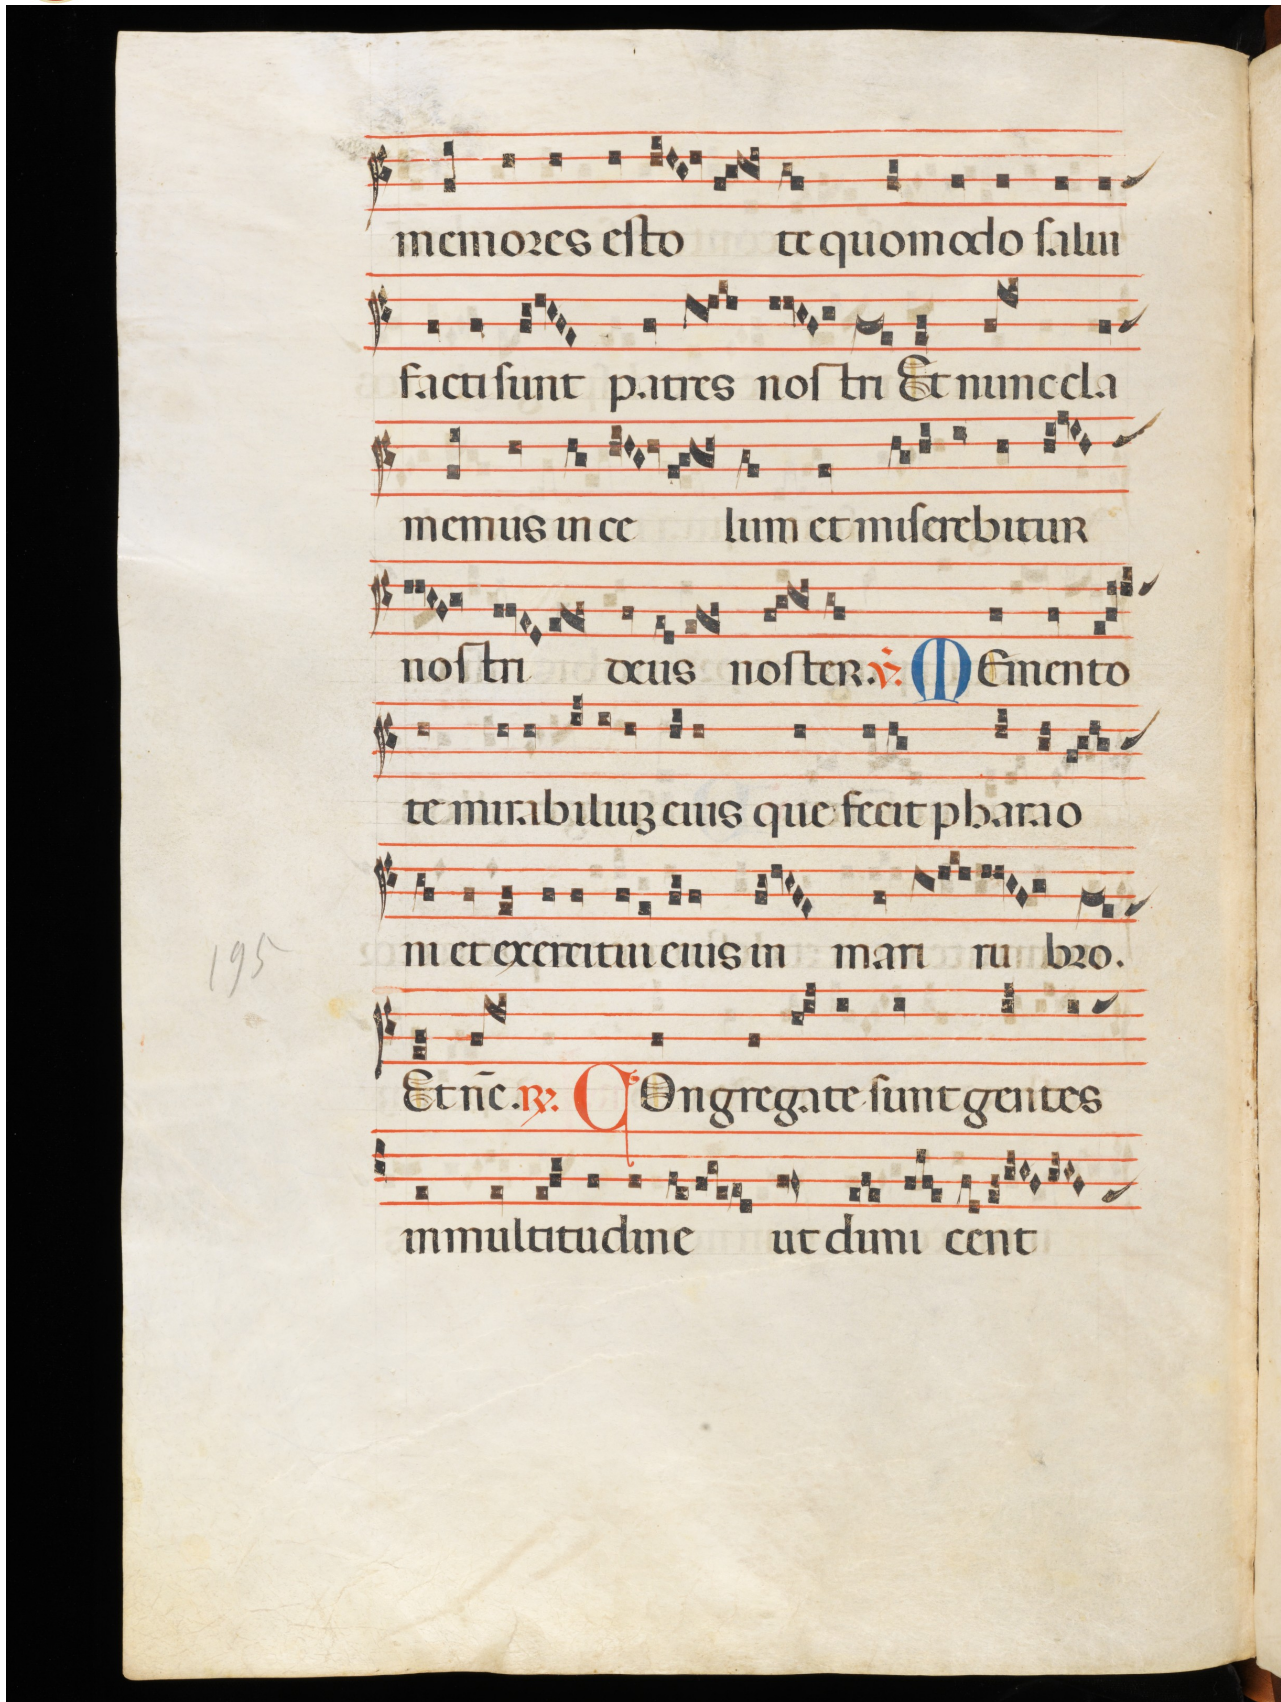 memores esto te quomodo salui
facti sunt patres nostri Et nunc cla
memus in ce lum et miserebitur
nostri deus noster. ℣. MEmento
te mirabiliuʒ eius que fecit pharao
ni et exercitui eius in mari rubro.
195
Et nc̄. ℟. COngregate sunt gentes
in multitudine ut dimi cent